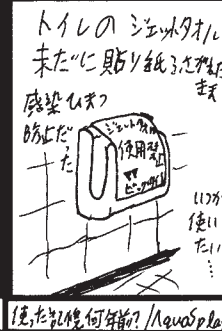 トイレのジェットタオル
未だに貼り紙
感染ひまつ
防止だった
ジェットタオル
使用禁止
いつか
使い
たい
…
使った記憶何年前?/AquaSpla